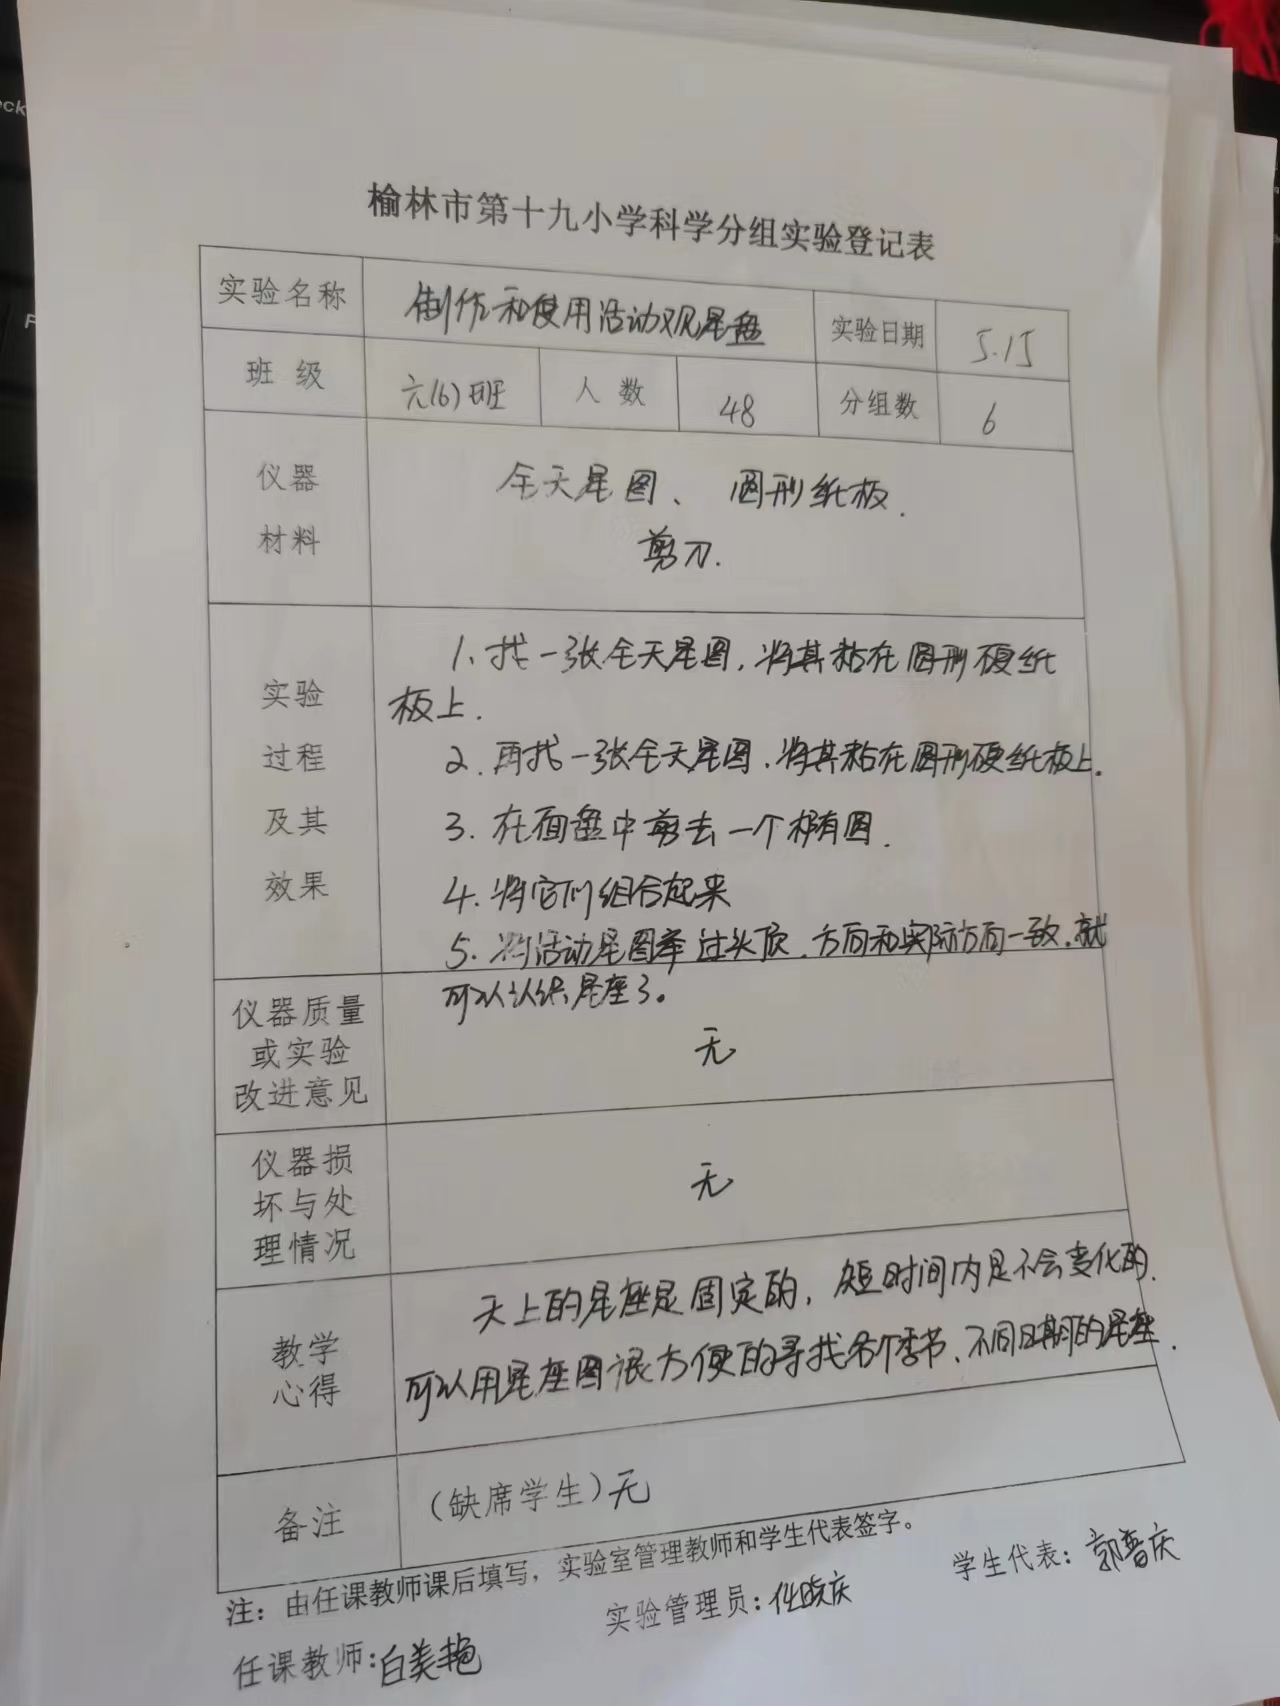 榆林市第十九小学科学分组实验登记表
实验名称 制作和使用活动观星盘 实验日期 5.15
班 级 六(6)班 人 数 48 分组数 6
仪器 全天星图、 圆形纸板.
材料 剪刀.
1、找一张全天星图,将其粘在圆形硬纸
实验 板上.
过程 2、再找一张全天星图,将其粘在圆形硬纸板上.
及其 3. 在面盘中剪去一个椭圆.
效果 4. 将它们组合起来
5. 将活动星图举过头顶,方向和实际方向一致,就
可以认识星座了。
仪器质量
或实验 无
改进意见
仪器损
坏与处 无
理情况
天上的星座是固定的,短时间内是不会变化的.
教学 可以用星座图很方便的寻找各个季节、不同日期的星座.
心得
备注 (缺席学生)无
注:由任课教师课后填写,实验室管理教师和学生代表签字。
任课教师:白美艳 实验管理员:任晓庆 学生代表:郭晋庆
ck
F